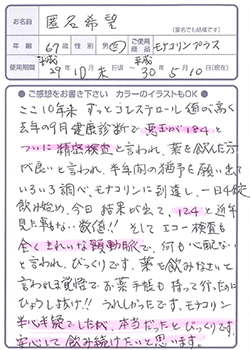 お名前 匿名希望
(匿名でも結構です)
年齢 67歳 性別 男・女 ご使用商品 モナコリンプラス
使用期間 平成29年10月末頃 ～ 平成30年5月10日(現在)
●ご感想をお書き下さい カラーのイラストもOK●
ここ10年来 ずっとコレステロール値が高く
去年の9月健康診断で 悪玉が184と
ついに精密検査と言われ、薬を飲んだ方
が良いと言われ、半年間の猶予を願い出て
いろいろ調べ、モナコリンに到達し、一日4錠
飲み始め、今日 結果が出て、124と近年
見た事もない数値!! そしてエコー検査も
全くきれいな頸動脈で、何も心配ない
と言われ、びっくりです。薬を飲みなさいと
言われる覚悟でお薬手帳も持って行ったのに
ひょうし抜け!! うれしかったです。モナコリン
半心半疑でしたが、本当だったとびっくりです。
安心して飲み続けたいと思います。